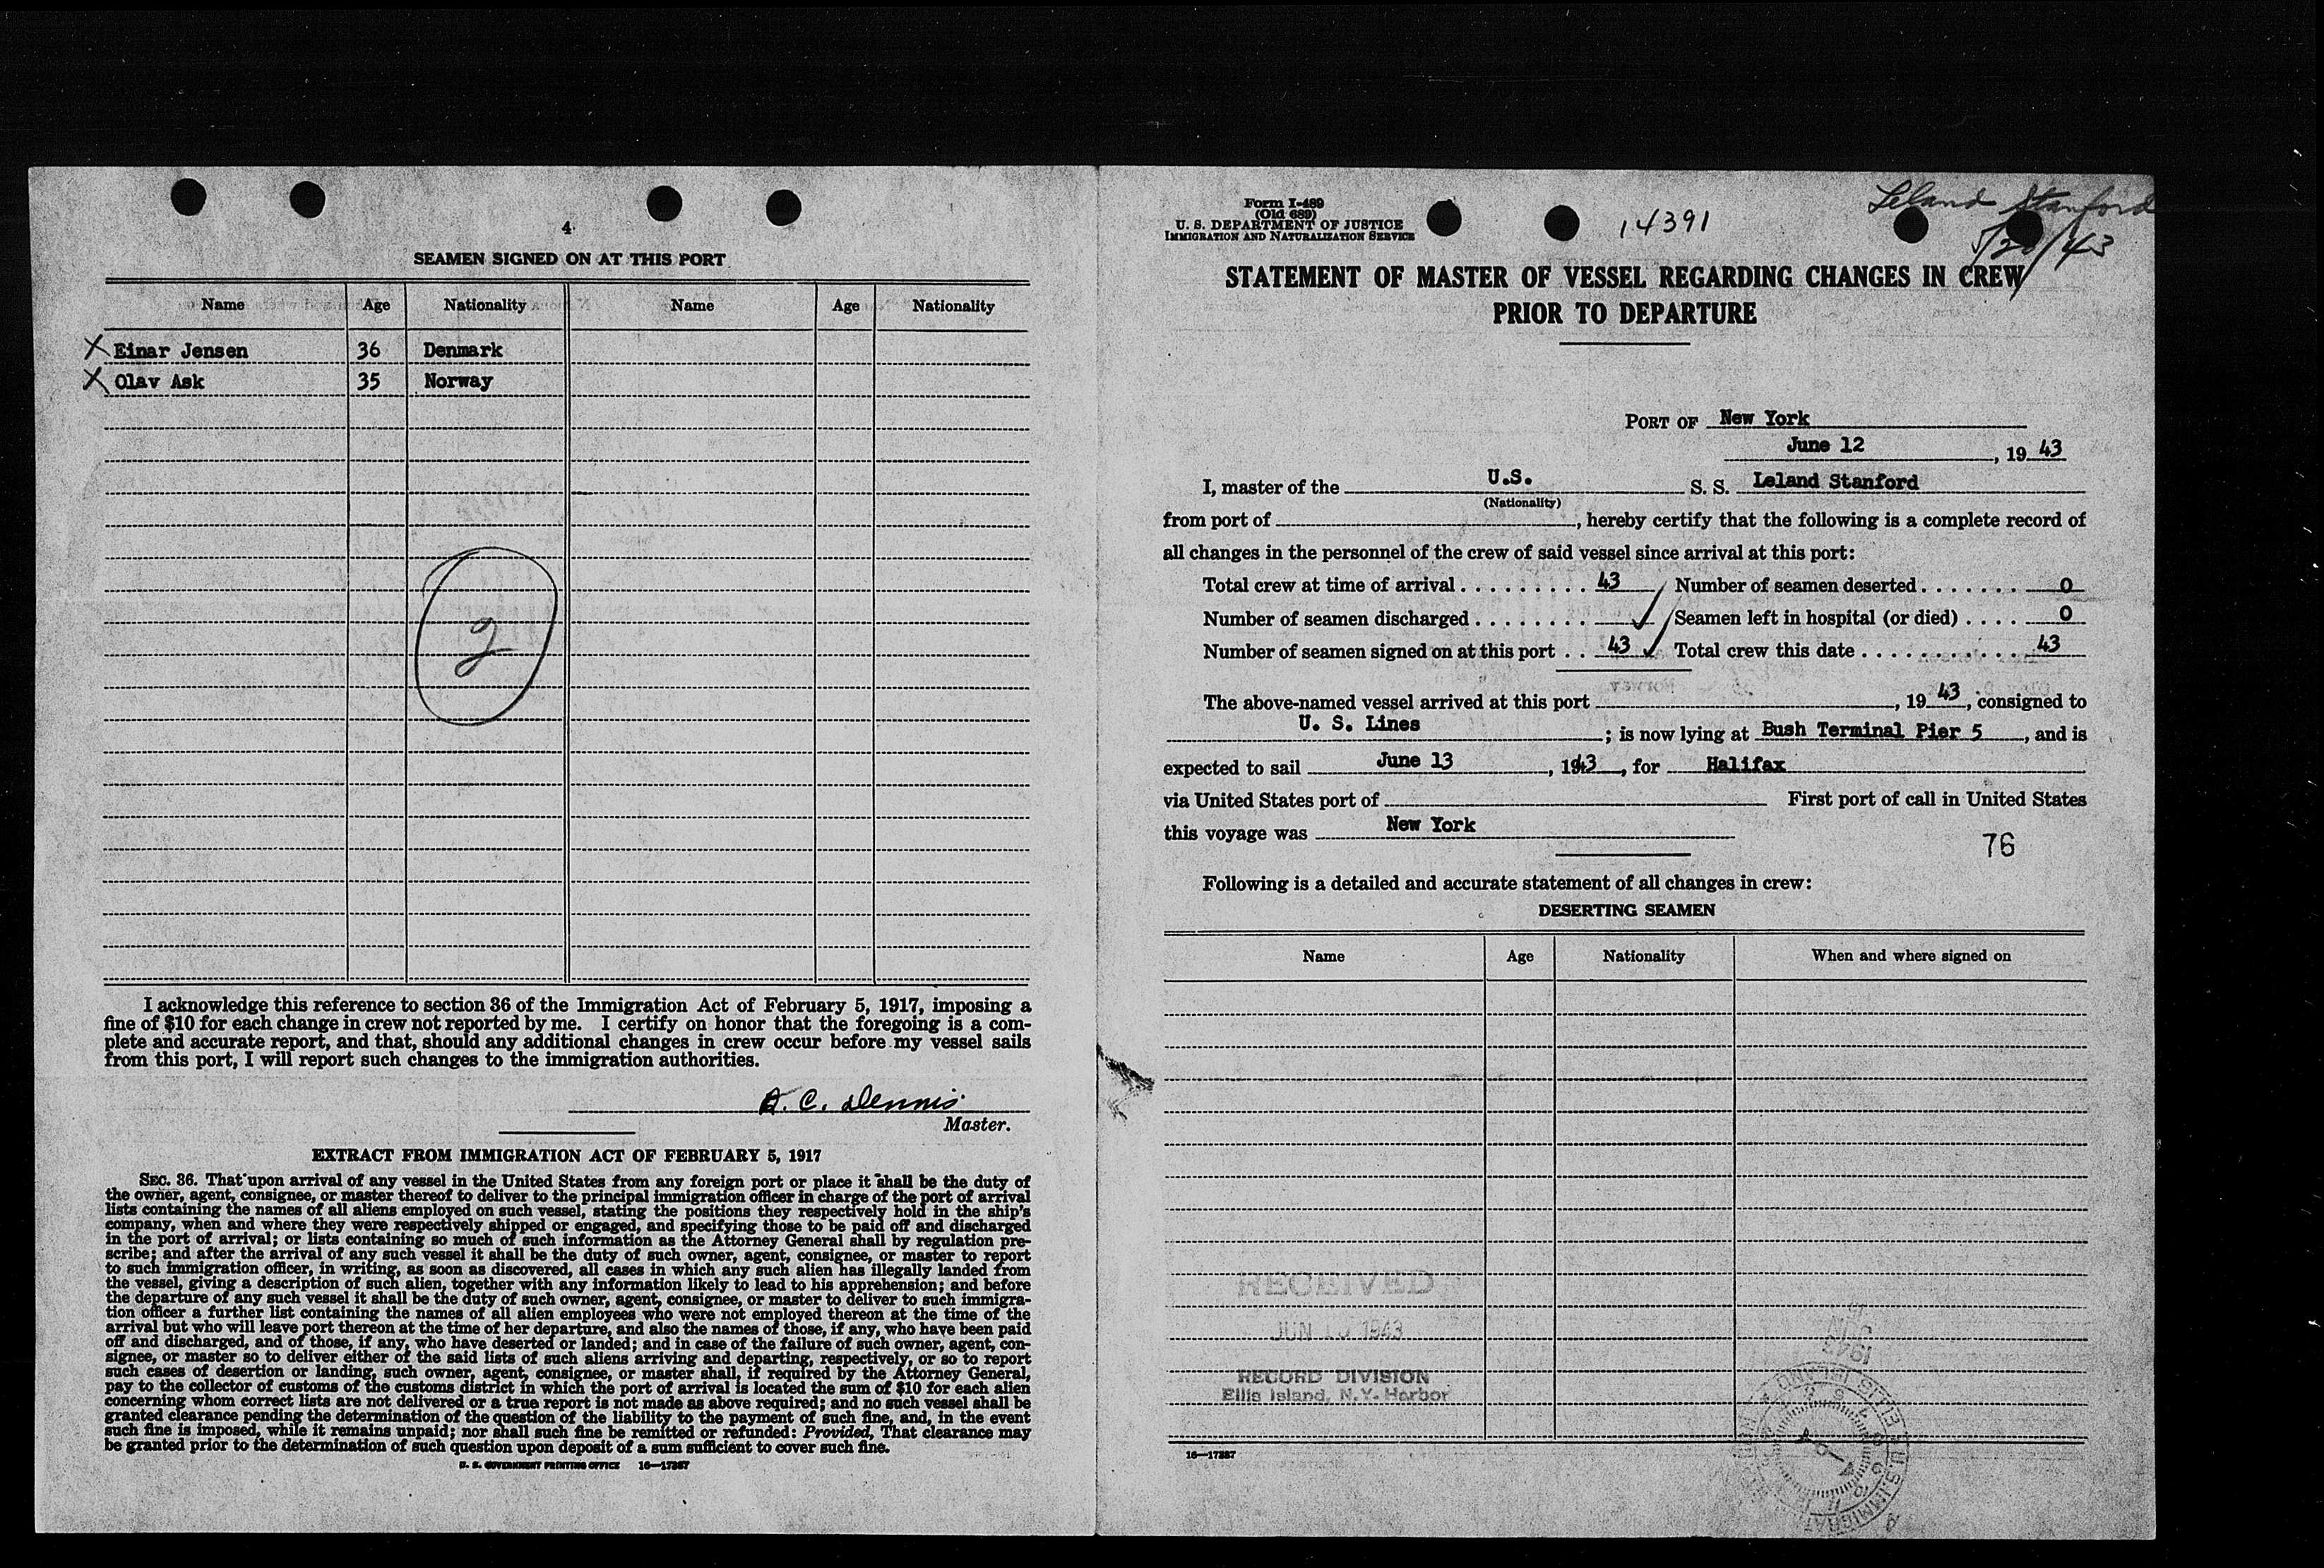 4
SEAMEN SIGNED ON AT THIS PORT
Name Age Nationality Name Age Nationality
X Einar Jensen 36 Denmark
X Olav Ask 35 Norway
2
I acknowledge this reference to section 36 of the Immigration Act of February 5, 1917, imposing a
fine of $10 for each change in crew not reported by me. I certify on honor that the foregoing is a com-
plete and accurate report, and that, should any additional changes in crew occur before my vessel sails
from this port, I will report such changes to the immigration authorities.
C. Dennis
Master.
EXTRACT FROM IMMIGRATION ACT OF FEBRUARY 5, 1917
SEC. 36. That upon arrival of any vessel in the United States from any foreign port or place it shall be the duty of
the owner, agent, consignee, or master thereof to deliver to the principal immigration officer in charge of the port of arrival
lists containing the names of all aliens employed on such vessel, stating the positions they respectively hold in the ship's
company, when and where they were respectively shipped or engaged, and specifying those to be paid off and discharged
in the port of arrival; or lists containing so much of such information as the Attorney General shall by regulation pre-
scribe; and after the arrival of any such vessel it shall be the duty of such owner, agent, consignee, or master to report
to such immigration officer, in writing, as soon as discovered, all cases in which any such alien has illegally landed from
the vessel, giving a description of such alien, together with any information likely to lead to his apprehension; and before
the departure of any such vessel it shall be the duty of such owner, agent, consignee, or master to deliver to such immigra-
tion officer a further list containing the names of all alien employees who were not employed thereon at the time of the
arrival but who will leave port thereon at the time of her departure, and also the names of those, if any, who have been paid
off and discharged, and of those, if any, who have deserted or landed; and in case of the failure of such owner, agent, con-
signee, or master so to deliver either of the said lists of such aliens arriving and departing, respectively, or so to report
such cases of desertion or landing, such owner, agent, consignee, or master shall, if required by the Attorney General,
pay to the collector of customs of the customs district in which the port of arrival is located the sum of $10 for each alien
concerning whom correct lists are not delivered or a true report is not made as above required; and no such vessel shall be
granted clearance pending the determination of the question of the liability to the payment of such fine, and, in the event
such fine is imposed, while it remains unpaid; nor shall such fine be remitted or refunded: Provided, That clearance may
be granted prior to the determination of such question upon deposit of a sum sufficient to cover such fine.
U. S. GOVERNMENT PRINTING OFFICE 16—17287
Form I-489
(Old 689)
U. S. DEPARTMENT OF JUSTICE
IMMIGRATION AND NATURALIZATION SERVICE
14391
Leland Stanford
5/20/43
STATEMENT OF MASTER OF VESSEL REGARDING CHANGES IN CREW
PRIOR TO DEPARTURE
PORT OF New York
June 12, 1943
I, master of the U.S. S. S. Leland Stanford
(Nationality)
from port of , hereby certify that the following is a complete record of
all changes in the personnel of the crew of said vessel since arrival at this port:
Total crew at time of arrival . . . . . . . . . 43 Number of seamen deserted . . . . . . . 0
Number of seamen discharged . . . . . . . . Seamen left in hospital (or died) . . . . 0
Number of seamen signed on at this port . . 43 Total crew this date . . . . . . . . . . . 43
The above-named vessel arrived at this port , 1943, consigned to
U. S. Lines ; is now lying at Bush Terminal Pier 5, and is
expected to sail June 13, 1943, for Halifax
via United States port of First port of call in United States
this voyage was New York
76
Following is a detailed and accurate statement of all changes in crew:
DESERTING SEAMEN
Name Age Nationality When and where signed on
RECEIVED
JUN 1943
RECORD DIVISION
Ellis Island, N.Y. Harbor
16—17287